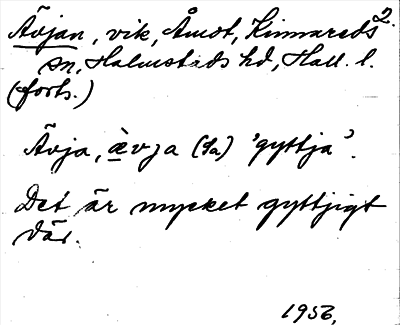 2.
Ävjan, vik, Åmot, Kinnareds
sn, Halmstads hd, Hall. l.
(forts.)
Ävja, ævja (sa) 'gyttja'.
Det är mycket gyttjigt
där.
1956.